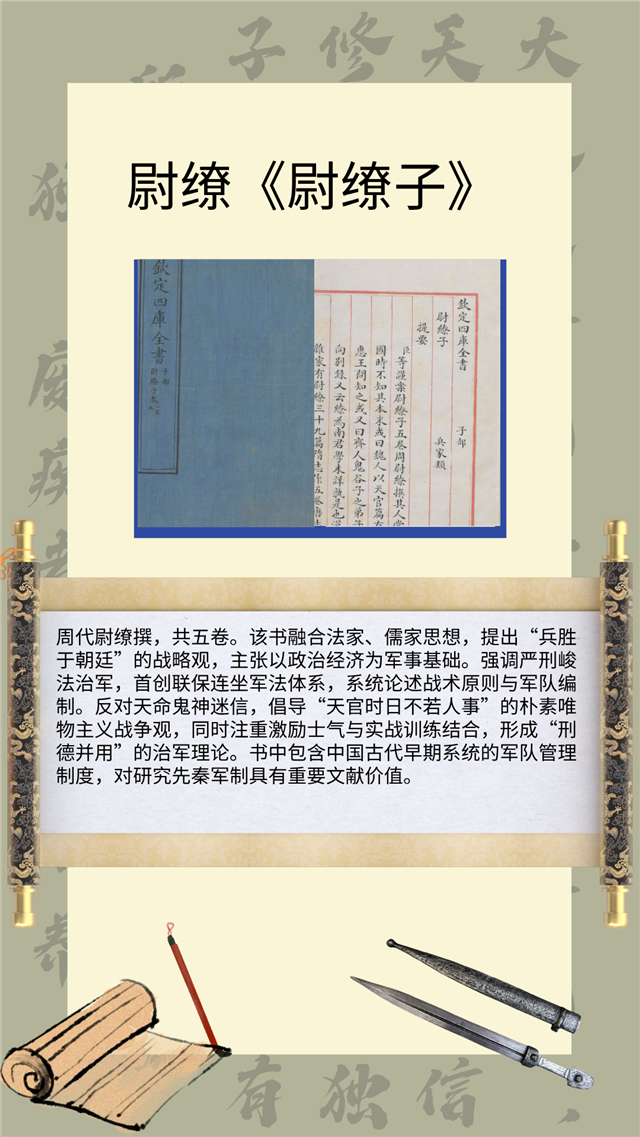 子修天大
尉缭《尉缭子》
欽定四庫全書
子部
尉繚子卷
欽定四庫全書　子部
尉繚子　兵家類
提要
臣等謹案尉繚子五卷周尉繚撰其人當
國時不知其本末或曰魏人以天官篇有
惠王問知之或又曰齊人鬼谷子之弟子
向别録又云繚為商君學未詳孰是也漢
雜家有尉繚三十九篇隋志作五卷唐志
周代尉缭撰，共五卷。该书融合法家、儒家思想，提出“兵胜
于朝廷”的战略观，主张以政治经济为军事基础。强调严刑峻
法治军，首创联保连坐军法体系，系统论述战术原则与军队编
制。反对天命鬼神迷信，倡导“天官时日不若人事”的朴素唯
物主义战争观，同时注重激励士气与实战训练结合，形成“刑
德并用”的治军理论。书中包含中国古代早期系统的军队管理
制度，对研究先秦军制具有重要文献价值。
有独信